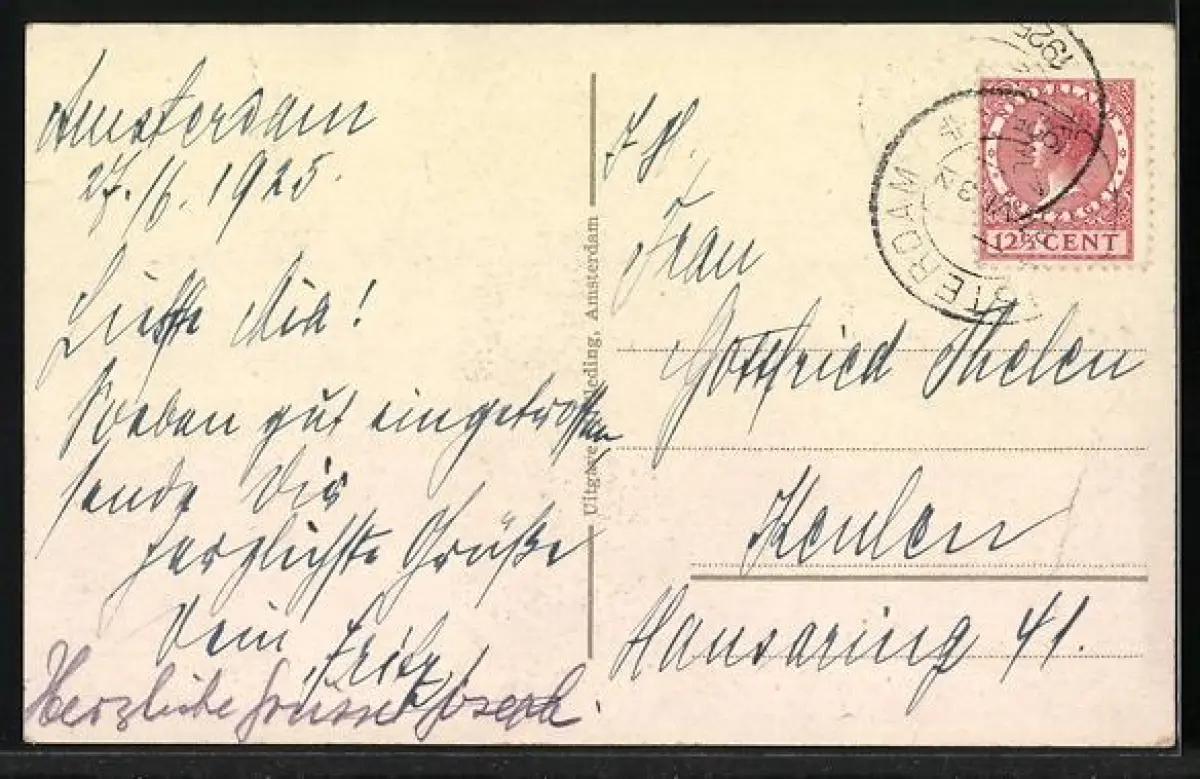 Amsterdam
27./6. 1925.
Liebste Mia!
Soeben gut eingetroffen
sende Dir
herzlichste Grüße
Dein Fritz
Herzliche Grüsse Joseph.
Uitgave Weding, Amsterdam
Frau
Gottfried Thelen
Keulen
Hansaring 41.
NEDERLAND
12½ CENT
1925